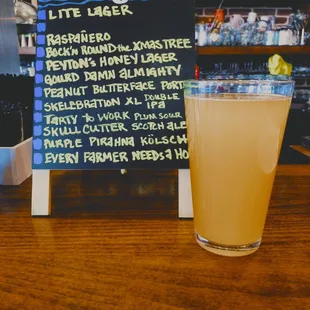 LITE LAGER
RASPAÑERO
BOCK'N ROUND THE XMAS TREE
PEYTON'S HONEY LAGER
GOURD DAMN ALMIGHTY
PEANUT BUTTERFACE PORT
SKELEBRATION XL DOUBLE IPA
TARTY TO WORK PLUM SOUR
SKULL CUTTER SCOTCH ALE
PURPLE PIRAHNA KÖLSCH
EVERY FARMER NEEDS A HO